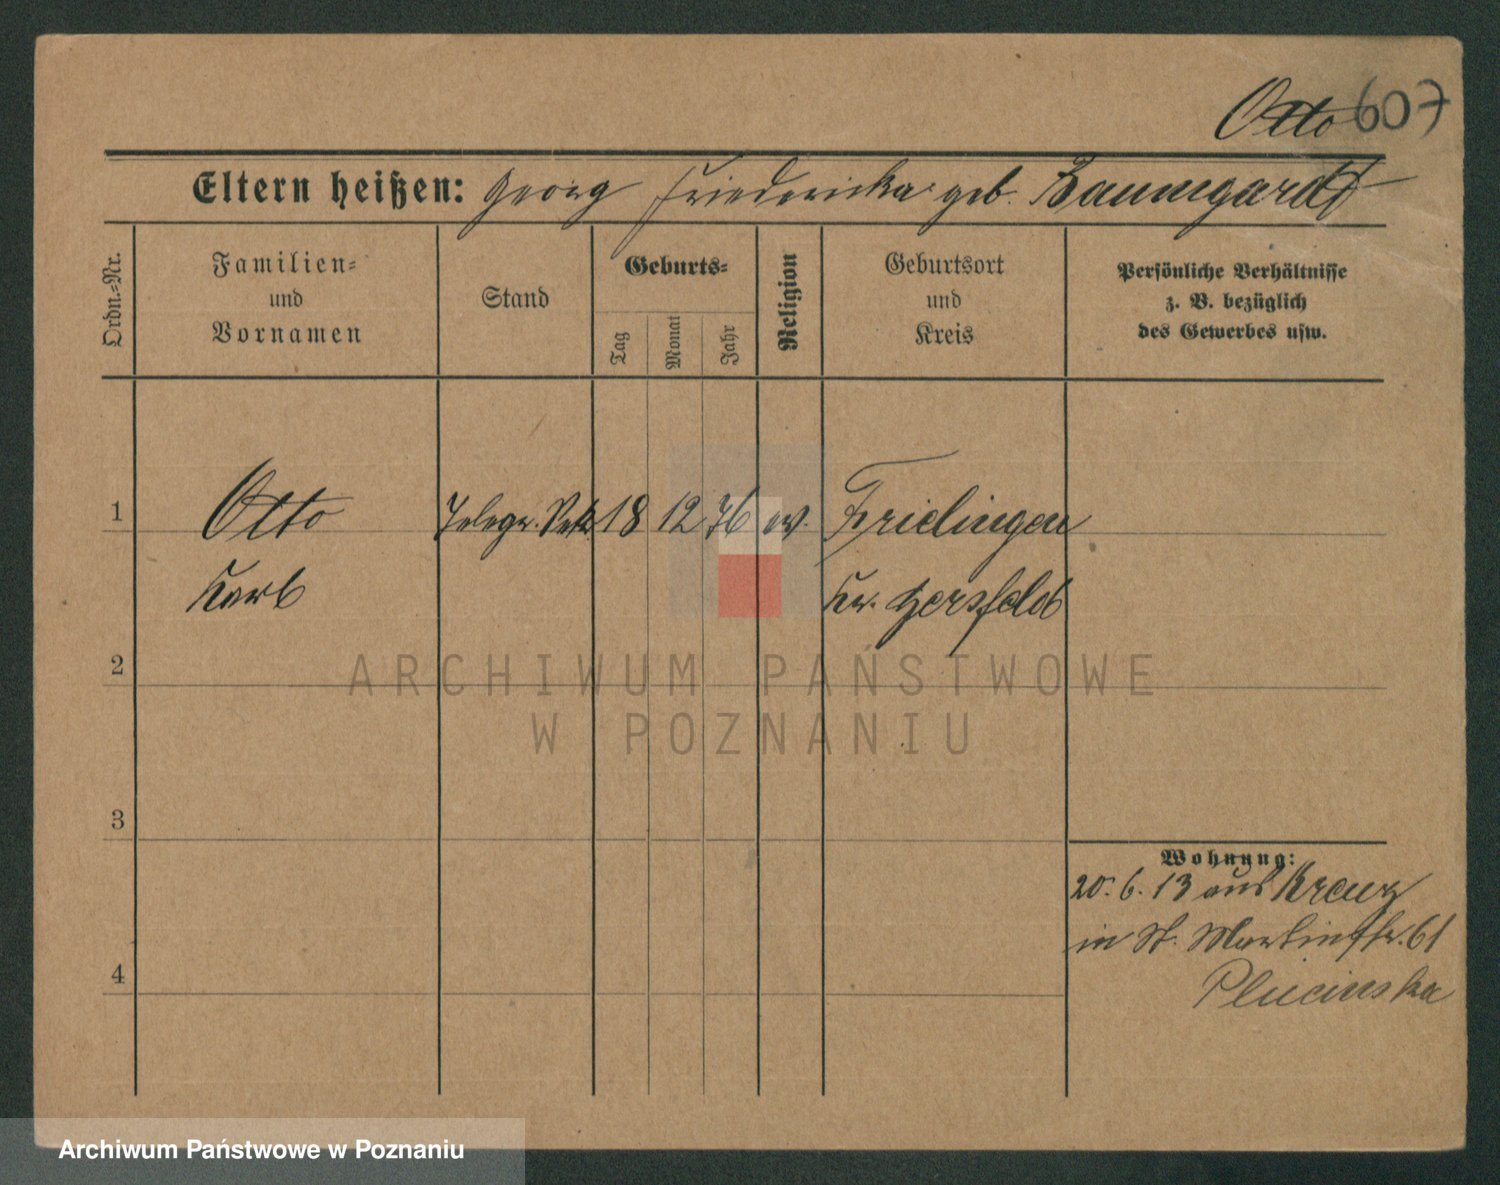 Otto 607
Eltern heißen: Georg Friedericka geb. Baumgardt
Ordn.-Nr.
Familien-
und
Vornamen
Stand
Geburts-
Tag
Monat
Jahr
Religion
Geburtsort
und
Kreis
Persönliche Verhältnisse
z. B. bezüglich
des Gewerbes usw.
1 Otto Telegr. 18 12 76 ev. Frielingen
Karl Kr. Hersfeld
2
ARCHIWUM PAŃSTWOWE
W POZNANIU
3
Wohnung:
20. 6. 13 aus Kreuz
in St. Martinstr. 61
4
Plucinska
Archiwum Państwowe w Poznaniu